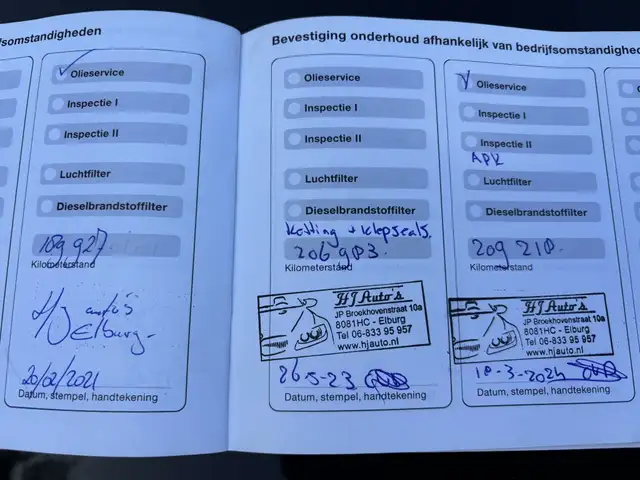 fsomstandigheden
Olieservice
Inspectie I
Inspectie II
Luchtfilter
Dieselbrandstoffilter
Kilometerstand
HJ auto's
Elburg
20/02/2021
Datum, stempel, handtekening
Bevestiging onderhoud afhankelijk van bedrijfsomstandighe
Olieservice
Inspectie I
Inspectie II
Luchtfilter
Dieselbrandstoffilter
+ klepseals.
206 983
Kilometerstand
HJ Auto's
JP Broekhovenstraat 10a
8081HC - Elburg
Tel 06-833 95 957
www.hjauto.nl
26-5-23
Datum, stempel, handtekening
Olieservice
Inspectie I
Inspectie II
APK
Luchtfilter
Dieselbrandstoffilter
209 218
Kilometerstand
HJ Auto's
JP Broekhovenstraat 10a
8081HC - Elburg
Tel 06-833 95 957
www.hjauto.nl
18-3-2024
Datum, stempel, handtekening